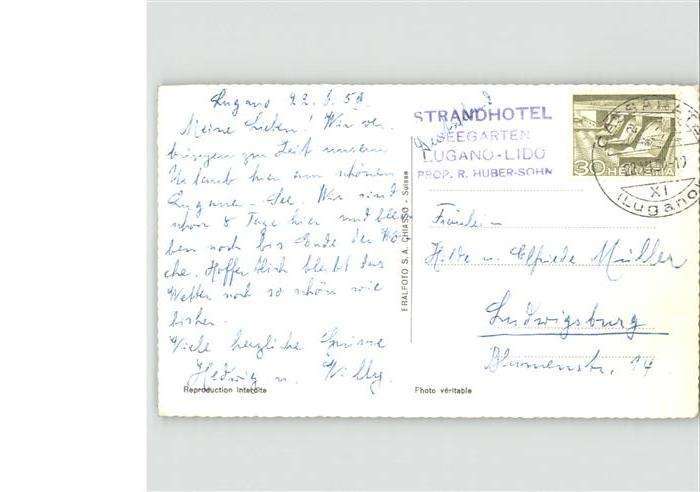 Lugano 22.6.59.
Meine Lieben! Wir ver-
bringen zur Zeit unseren
Urlaub hier am schönen
Lugano-See. Wir sind
schon 8 Tage hier und blei
ben noch bis Ende der Wo
che. Hoffentlich bleibt das
Wetter noch so schön wie
bisher.
Viele herzliche Grüsse
Hedwig u. Willy.
Reproduction interdite
ERALFOTO S.A. CHIASSO - Suisse
STRANDHOTEL
SEEGARTEN
LUGANO-LIDO
PROP. R. HUBER-SOHN
30 HELVETIA
CASSARATE
XI
(Lugano)
Fräulein
u. Elfriede Müller
Ludwigsburg
Blumenstr. 94
Photo véritable